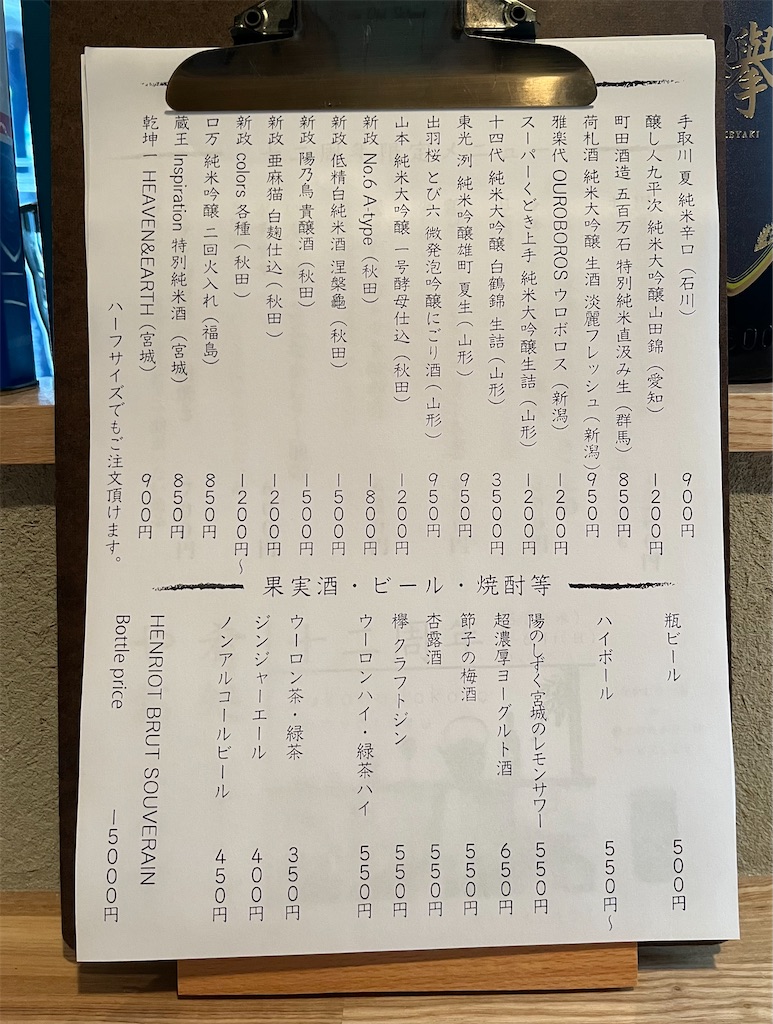 手取川 夏 純米辛口 (石川) 900円
醸し人九平次 純米大吟醸山田錦 (愛知) 1200円
町田酒造 五百万石 特別純米直汲み生 (群馬) 850円
荷札酒 純米大吟醸 生酒 淡麗フレッシュ (新潟) 950円
雅楽代 OUROBOROS ウロボロス (新潟) 1200円
スーパーくどき上手 純米大吟醸生詰 (山形) 1200円
十四代 純米大吟醸 白鶴錦 生詰 (山形) 3500円
東光 洌 純米吟醸雄町 夏生 (山形) 950円
出羽桜 とび六 微発泡吟醸にごり酒 (山形) 950円
山本 純米大吟醸 一号酵母仕込 (秋田) 1200円
新政 No.6 A-type (秋田) 1800円
新政 低精白純米酒 涅槃龜 (秋田) 1500円
新政 陽乃鳥 貴醸酒 (秋田) 1500円
新政 亜麻猫 白麹仕込 (秋田) 1200円
新政 colors 各種 (秋田) 1200円~
ロ万 純米吟醸 二回火入れ (福島) 850円
蔵王 Inspiration 特別純米酒 (宮城) 850円
乾坤一 HEAVEN&EARTH (宮城) 900円
ハーフサイズでもご注文頂けます。
果実酒・ビール・焼酎等
瓶ビール 500円
ハイボール 550円~
陽のしずく宮城のレモンサワー 550円
超濃厚ヨーグルト酒 650円
節子の梅酒 550円
杏露酒 550円
欅 クラフトジン 550円
ウーロンハイ・緑茶ハイ 550円
ウーロン茶・緑茶 350円
ジンジャーエール 400円
ノンアルコールビール 450円
HENRIOT BRUT SOUVERAIN
Bottle price 15000円
欅